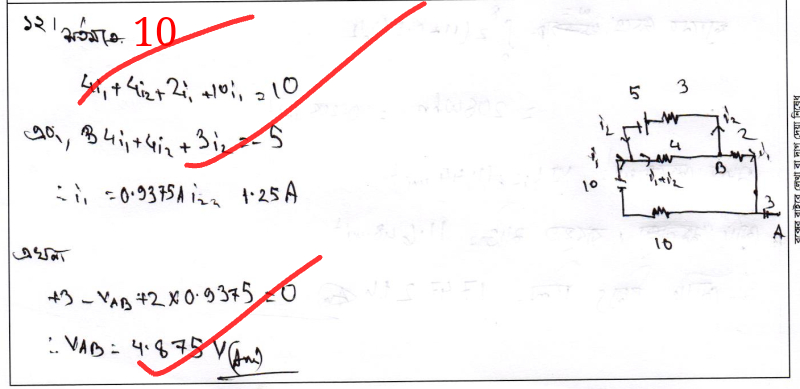 ১২। 10
4i₁ + 4i₂ + 2i₁ + 10i₁ = 10
এবং, 4i₁ + 4i₂ + 3i₂ = 5
∴ i₁ = 0.9375A i₂ = 1.25A
এখন
+3 - VAB + 2 × 0.9375 = 0
∴ VAB = 4.875 V (Ans)
5 3
i₂ i₂
4 2
i₁ i₁+i₂ B i₁
10
3
10 A
বক্সের বাইরে লেখা বা দাগ দেয়া নিষেধ